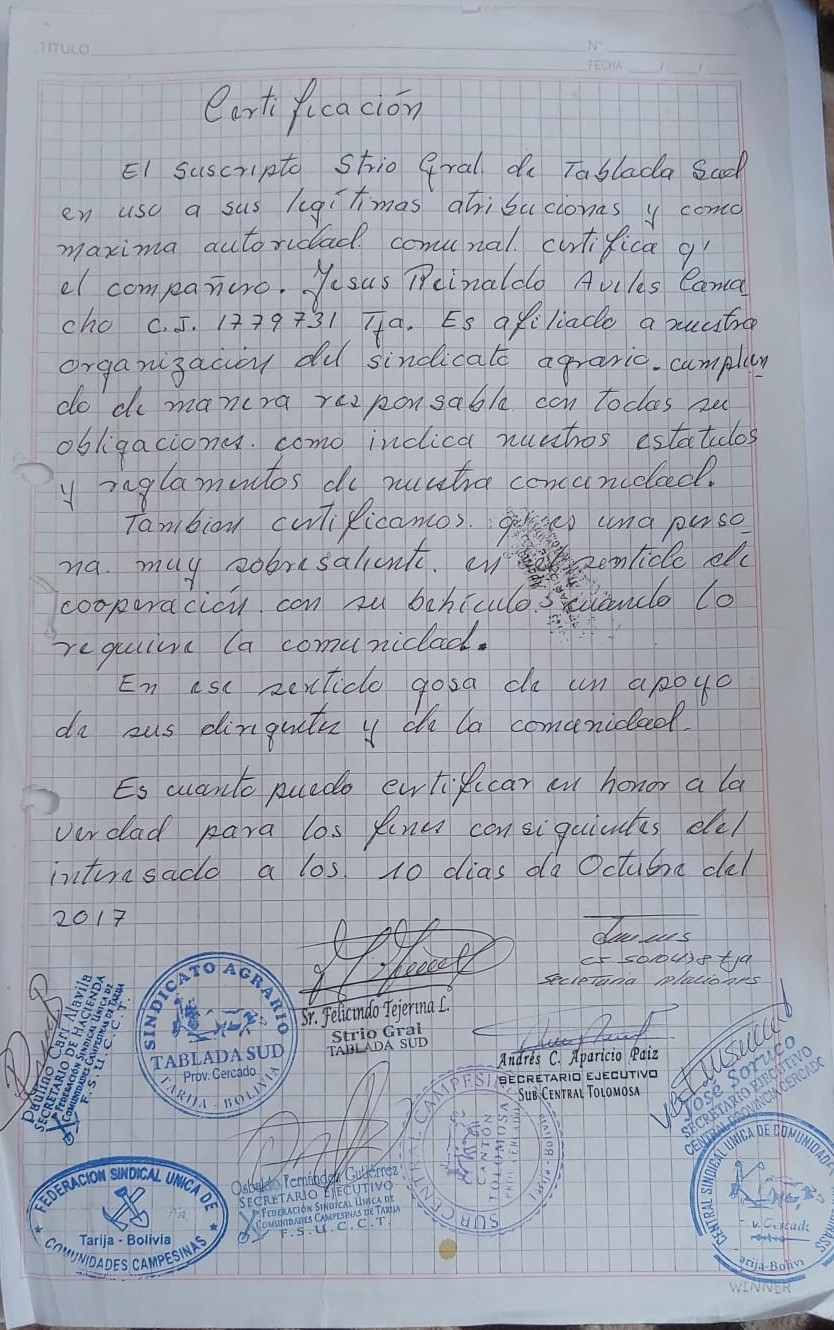 TITULO
N°
FECHA / /
Certificación
El suscripto Strio Gral de Tablada Sud
en uso a sus legítimas atribuciones y como
maxima autoridad comunal certifica q'
el compañero. Jesus Reinaldo Aviles Cama
cho C.I. 1779731 Tja. Es afiliado a nuestra
organización del sindicato agrario. cumplien
do de manera responsable con todas su
obligaciones. como indica nuestros estatutos
y reglamentos de nuestra comunidad.
Tambien certificamos. q' es una perso
na. muy sobresaliente. en el sentido de
cooperación con su behículo. cuando lo
requiere la comunidad.
En ese sentido gosa de un apoyo
de sus dirigentes y de la comunidad.
Es cuanto puedo certificar en honor a la
verdad para los fines consiguientes del
interesado a los. 10 dias de Octubre del
2017
Paulino Cari Alavila
SECRETARIO DE HACIENDA
FEDERACIÓN SINDICAL UNICA DE
COMUNIDADES CAMPESINAS DE TARIJA
F.S.U.C.C.T.
SINDICATO AGRARIO
TABLADA SUD
Prov. Cercado
TARIJA - BOLIVIA
Sr. Felicindo Tejerina L.
Strio Gral
TABLADA SUD
secretaria relaciones
Andrés C. Aparicio Paiz
SECRETARIO EJECUTIVO
SUB CENTRAL TOLOMOSA
José Soruco
SECRETARIO EJECUTIVO
CENTRAL PROVINCIA CERCADO
FEDERACION SINDICAL UNICA DE
Tarija - Bolivia
COMUNIDADES CAMPESINAS
Osbaldo Fernández Gutiérrez
SECRETARIO EJECUTIVO
FEDERACIÓN SINDICAL UNICA DE
COMUNIDADES CAMPESINAS DE TARIJA
F.S.U.C.C.T.
SUB CENTRAL CAMPESINA
CANTÓN
TOLOMOSA
CENTRAL SINDICAL UNICA DE COMUNIDAD
arija-Boliv
WINNER